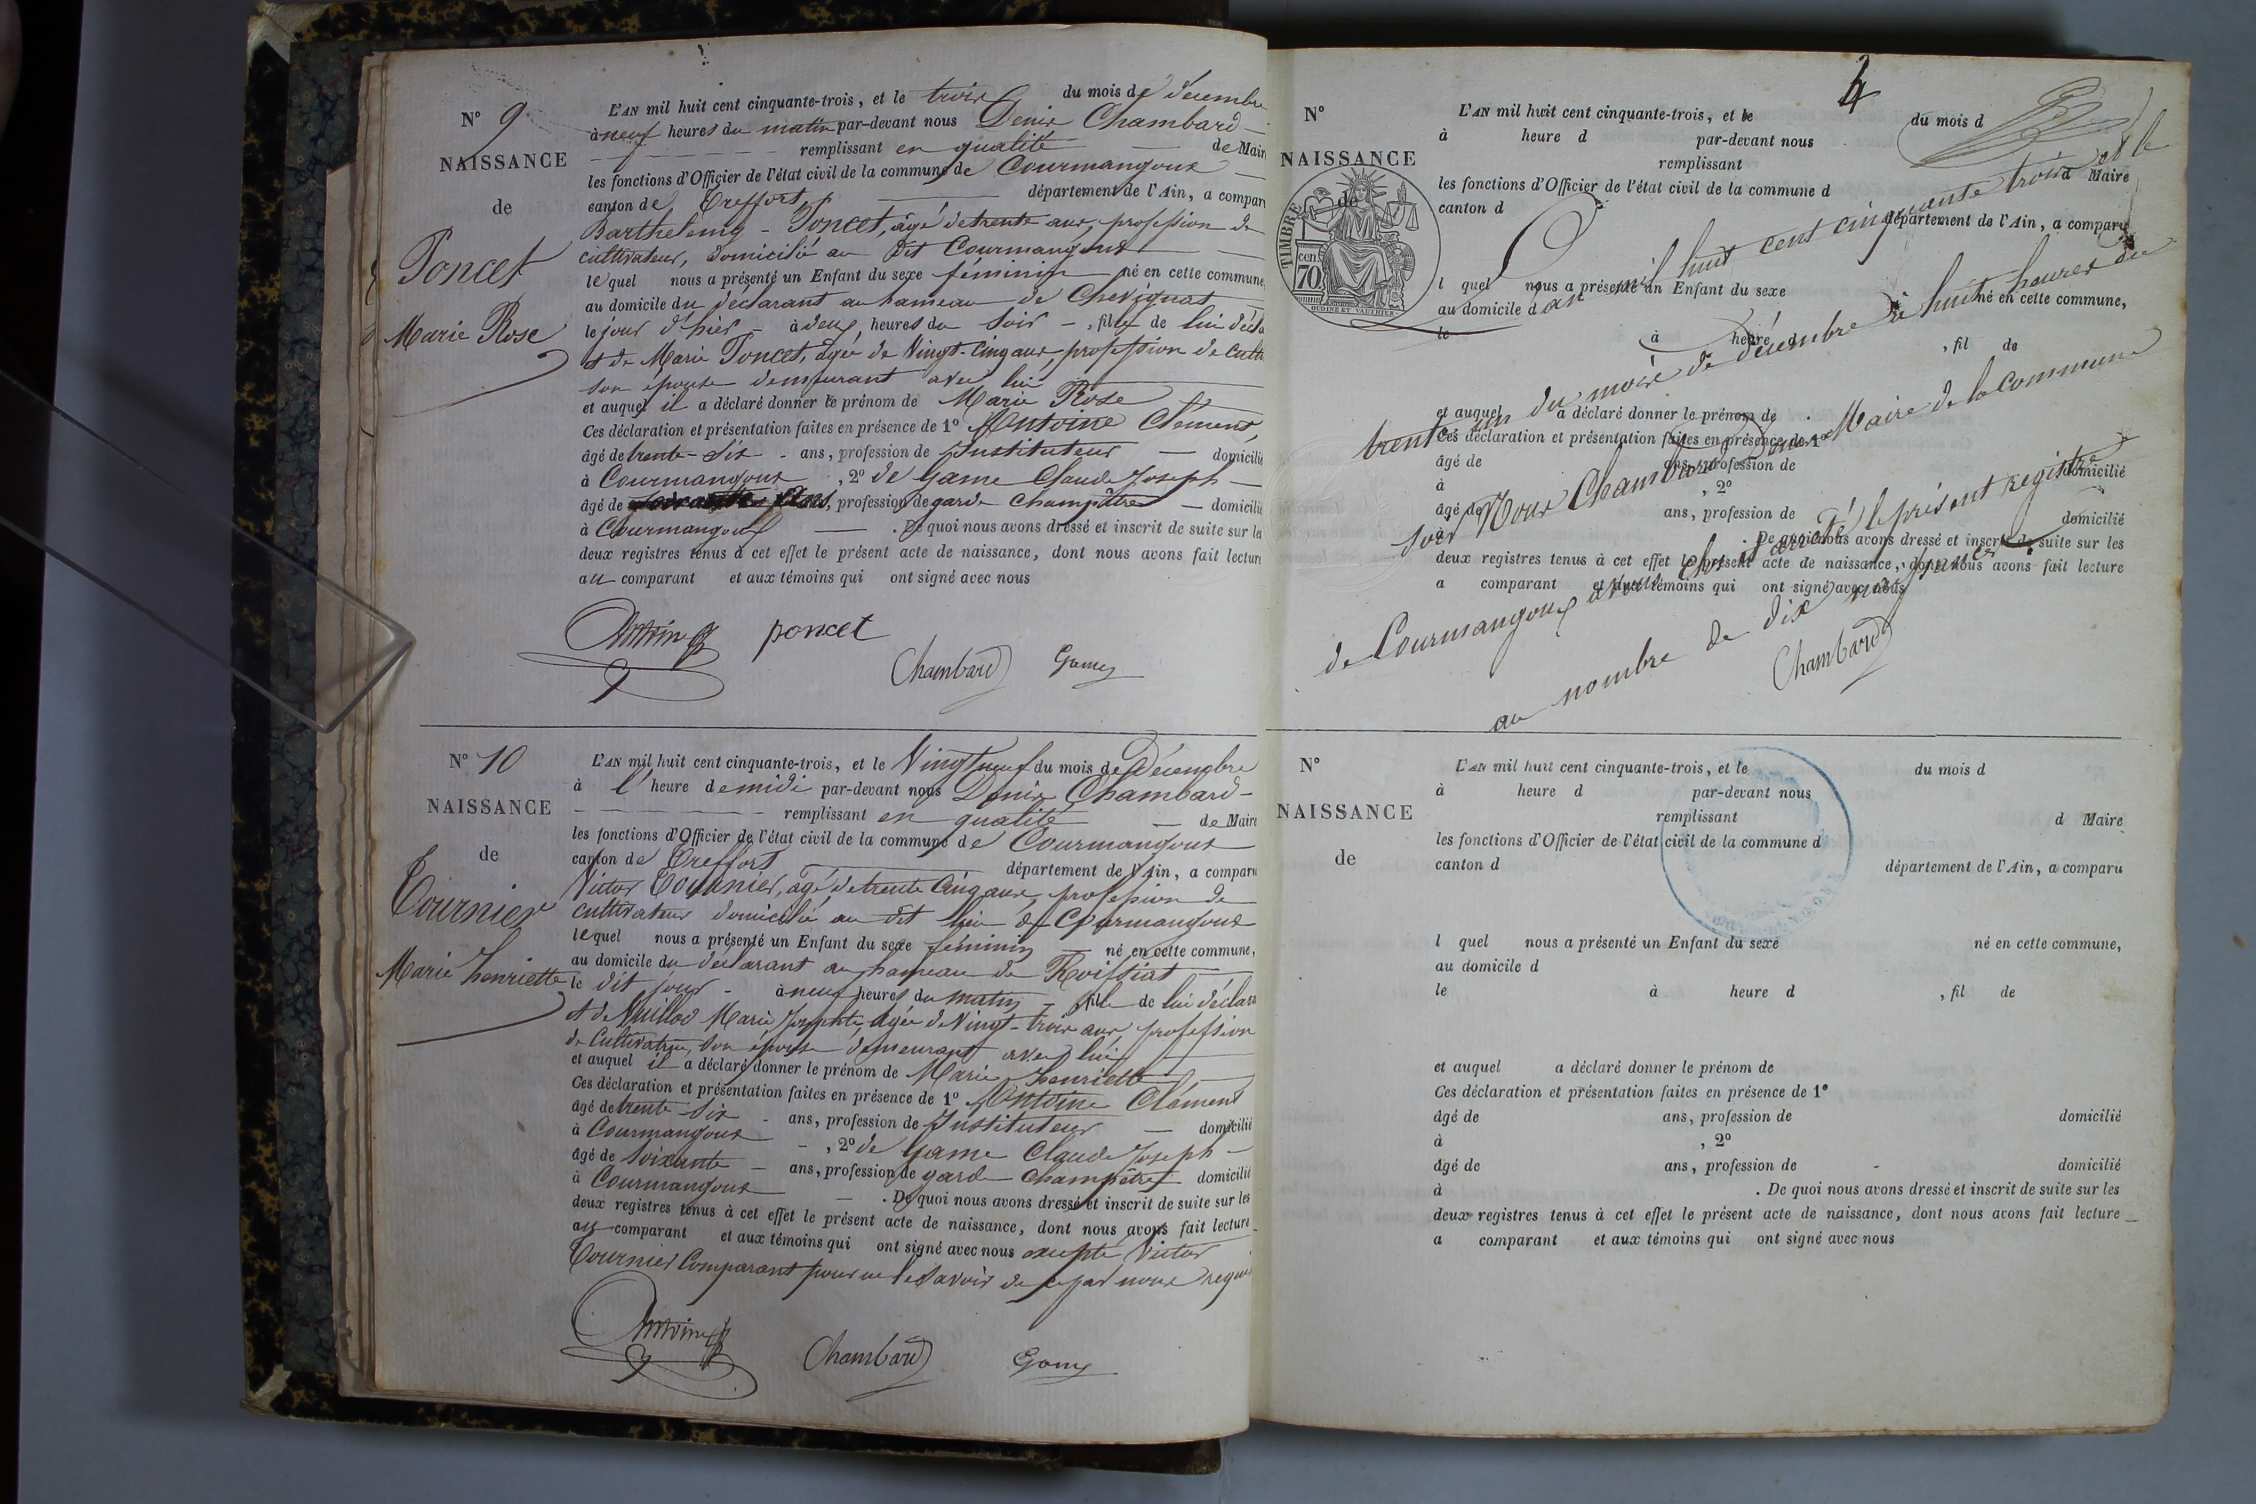 N° 9
NAISSANCE
de
Poncet
Marie Rose
L'AN mil huit cent cinquante-trois, et le trois du mois de décembre
à neuf heures du matin par-devant nous Denis Chambard
remplissant en qualité de Mair
les fonctions d'Officier de l'état civil de la commune de Courmangoux
canton de Treffort département de l'Ain, a compar
Barthelemy Poncet, âgé de trente ans, profession de
cultivateur, domicilié au dit Courmangoux
lequel nous a présenté un Enfant du sexe féminin né en cette commune,
au domicile du déclarant au hameau de Chevignat
le jour d'hier à deux heures du soir, fille de lui décla
et de Marie Poncet, âgée de Vingt-cinq ans profession de cultiv
son épouse demeurant avec lui
et auquel il a déclaré donner le prénom de Marie Rose
Ces déclaration et présentation faites en présence de 1° Antoine Clément,
âgé de trente-six ans, profession de Instituteur domicilié
à Courmangoux, 2° de Game Claude Joseph
âgé de soixante ans, profession de garde champêtre domicilié
à Courmangoux. De quoi nous avons dressé et inscrit de suite sur les
deux registres tenus à cet effet le présent acte de naissance, dont nous avons fait lecture
au comparant et aux témoins qui ont signé avec nous
Antoine poncet
Chambard Game
N° 10
NAISSANCE
de
Tournier
Marie henriette
L'AN mil huit cent cinquante-trois, et le Vingt neuf du mois de Décembre
à l' heure de midi par-devant nous Denis Chambard
remplissant en qualité de Maire
les fonctions d'Officier de l'état civil de la commune de Courmangoux
canton de Treffort département de l'Ain, a comparu
Victor Tournier, âgé de trente cinq ans, profession de
cultivateur domicilié au dit lieu de Courmangoux
lequel nous a présenté un Enfant du sexe féminin né en cette commune,
au domicile du déclarant au hameau de Roissiat
le dit jour à neuf heures du matin, fille de lui déclara
et de Marie Josephte, âgée de Vingt-trois ans, profession
de Cultivatrice, son épouse demeurant avec lui
et auquel il a déclaré donner le prénom de Marie henriette
Ces déclaration et présentation faites en présence de 1° Antoine Clément
âgé de trente six ans, profession de Instituteur domicilié
à Courmangoux, 2° de Game Claude Joseph
âgé de soixante ans, profession de garde champêtre domicilié
à Courmangoux. De quoi nous avons dressé et inscrit de suite sur les
deux registres tenus à cet effet le présent acte de naissance, dont nous avons fait lecture
au comparant et aux témoins qui ont signé avec nous excepté Victor
Tournier Comparant pour ne le savoir de ce par nous requis
Antoine Chambard Game
4
N°
NAISSANCE
de
TIMBRE
70 cen.
OUDINÉ ET VAUTHIER
L'AN mil huit cent cinquante-trois, et le du mois d
à heure d par-devant nous
remplissant d Maire
les fonctions d'Officier de l'état civil de la commune d
canton d département de l'Ain, a comparu
l quel nous a présenté un Enfant du sexe né en cette commune,
au domicile d
le à heure d, fil de
et auquel a déclaré donner le prénom de
Ces déclaration et présentation faites en présence de 1°
âgé de ans, profession de domicilié
à, 2°
âgé de ans, profession de domicilié
à. De quoi nous avons dressé et inscrit de suite sur les
deux registres tenus à cet effet le présent acte de naissance, dont nous avons fait lecture
a comparant et aux témoins qui ont signé avec nous
L'an mil huit cent cinquante trois et le
trente un du mois de décembre à huit heures du
soir Nous Chambard Denis Maire de la Commune
de Courmangoux avons clos et arrêté le présent registre
au nombre de dix naissances
Chambard
N°
NAISSANCE
de
L'AN mil huit cent cinquante-trois, et le du mois d
à heure d par-devant nous
remplissant d Maire
les fonctions d'Officier de l'état civil de la commune d
canton d département de l'Ain, a comparu
l quel nous a présenté un Enfant du sexe né en cette commune,
au domicile d
le à heure d, fil de
et auquel a déclaré donner le prénom de
Ces déclaration et présentation faites en présence de 1°
âgé de ans, profession de domicilié
à, 2°
âgé de ans, profession de domicilié
à. De quoi nous avons dressé et inscrit de suite sur les
deux registres tenus à cet effet le présent acte de naissance, dont nous avons fait lecture
a comparant et aux témoins qui ont signé avec nous